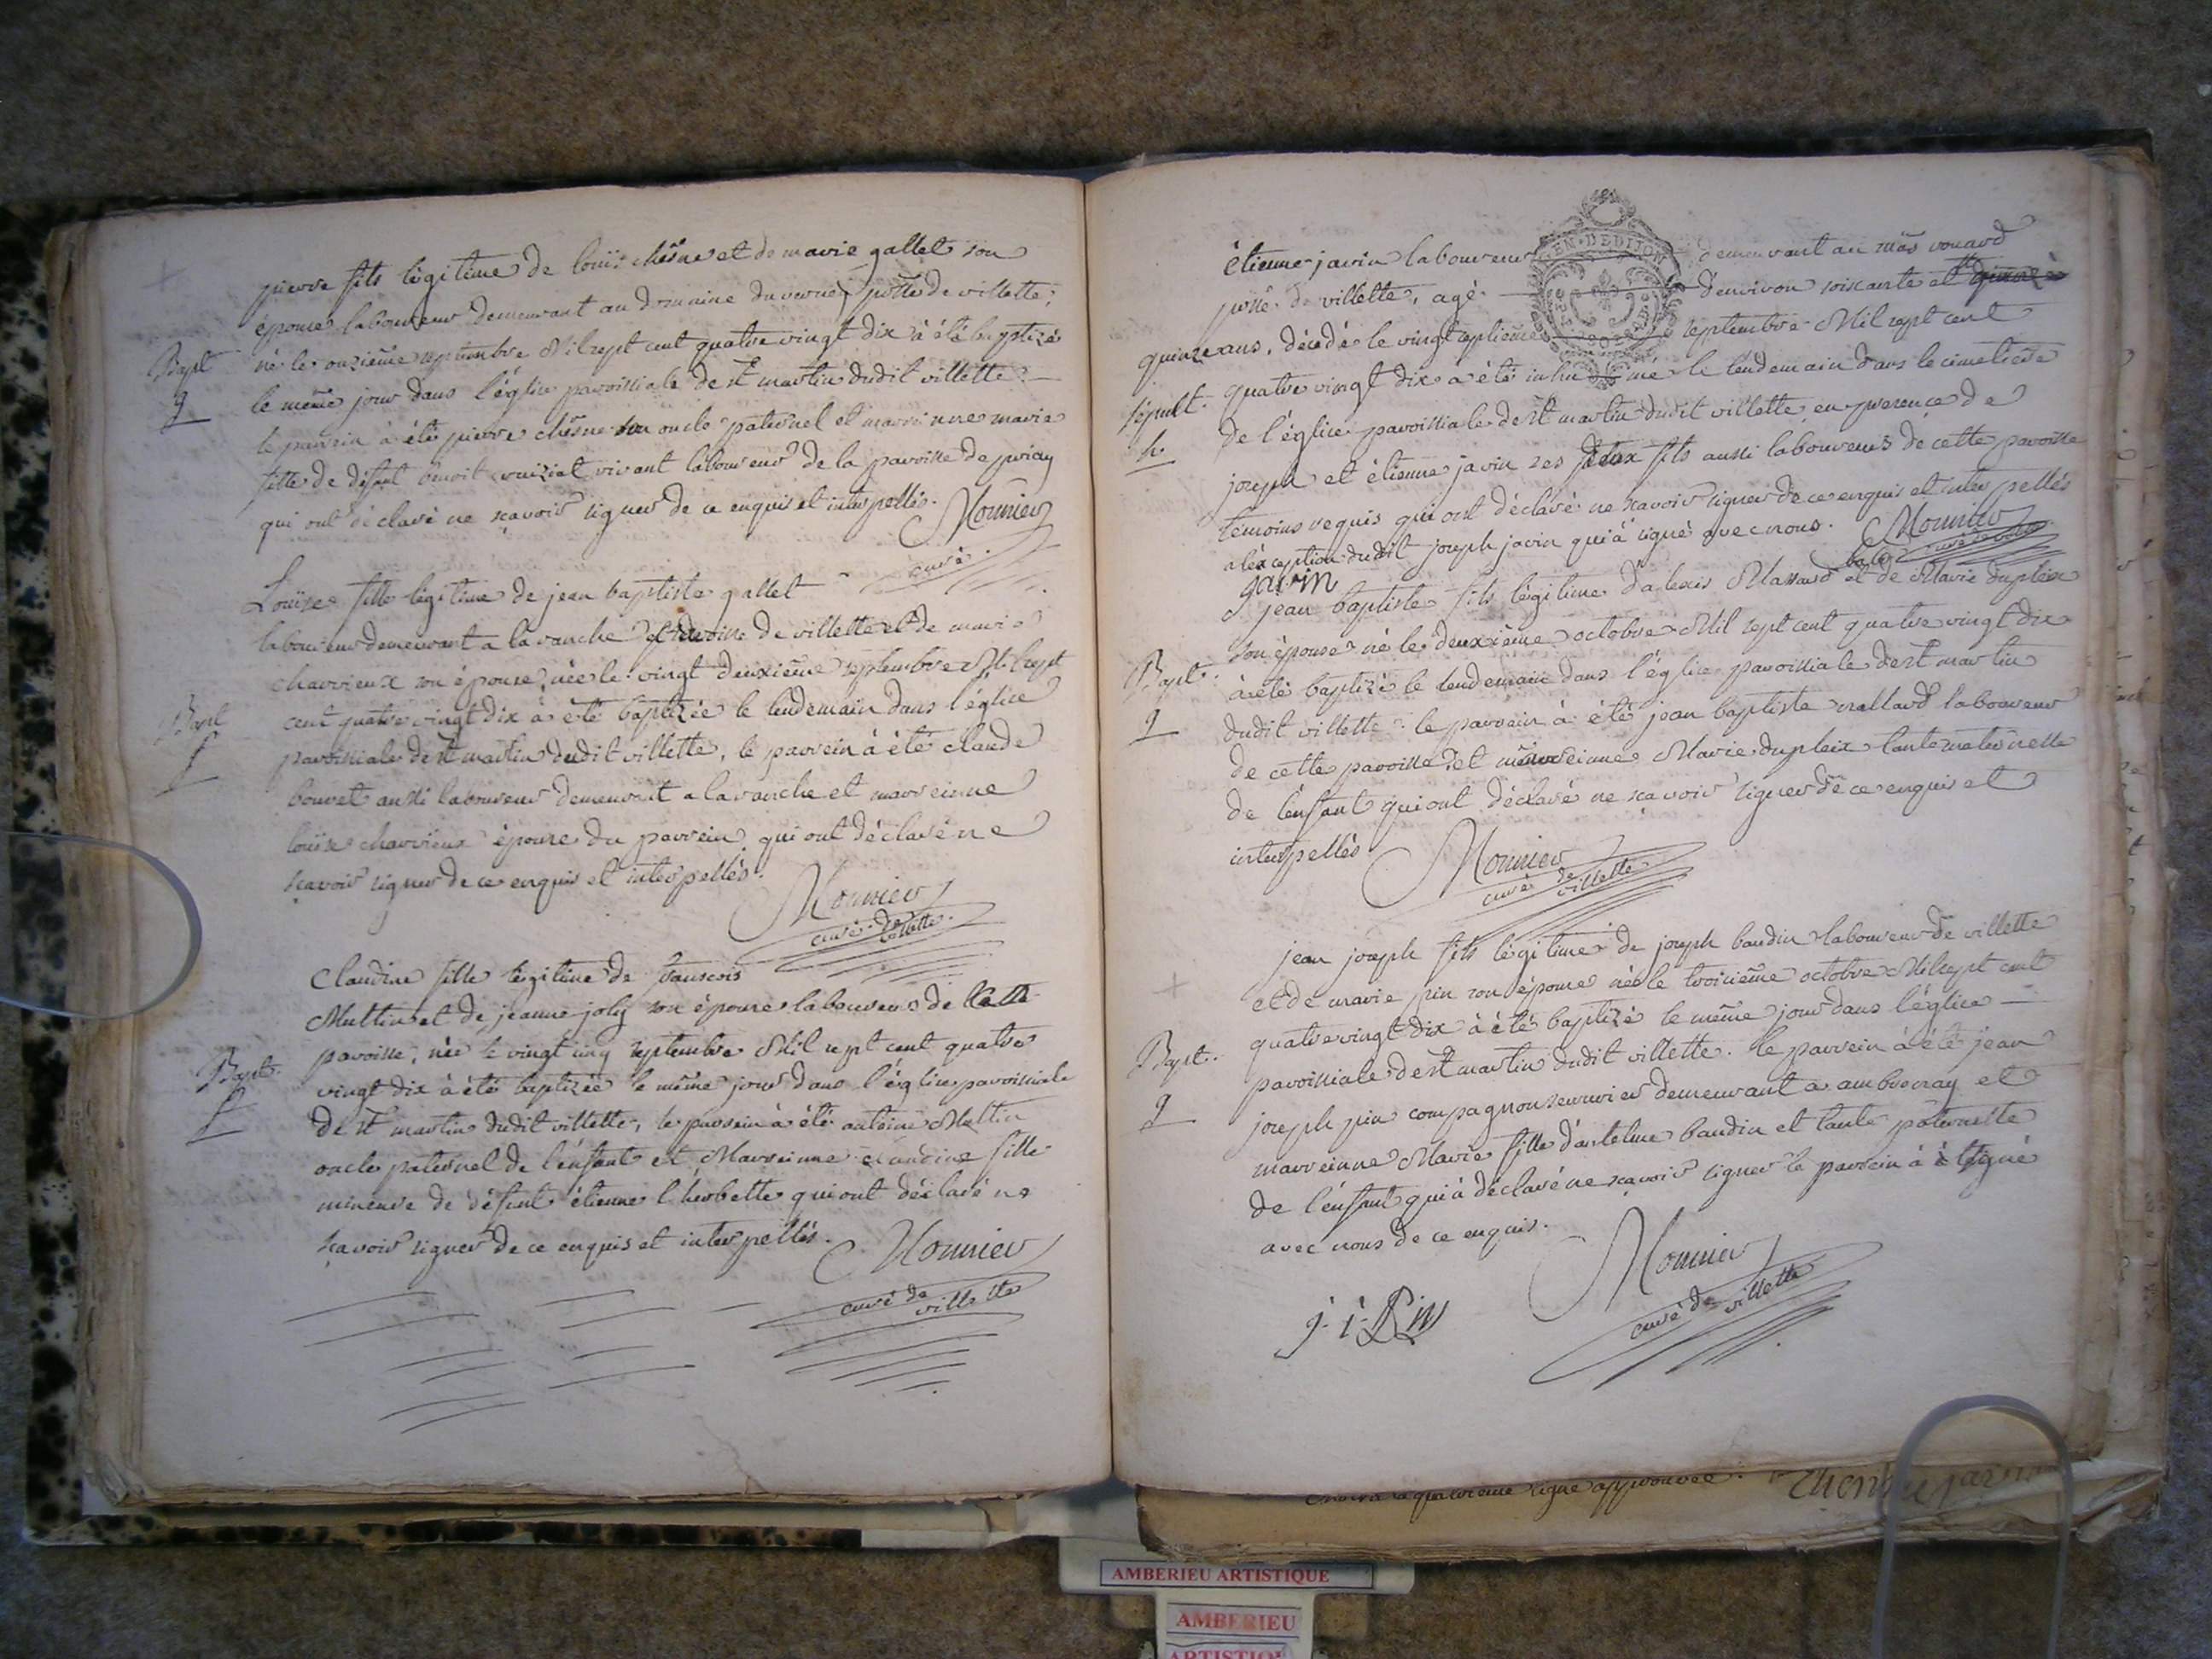 pierre fils légitime de louis chêne et de marie gallet son
épouse laboureur demeurant au domaine du vernay psse de villette,
né le onzième septembre Mil sept cent quatre vingt dix à été baptizé
le même jour dans l'église paroissiale de st martin dudit villette.
le parrin à été pierre chêne son oncle paternel et marrinne marie
fille de défunt benoit vivant laboureur de la paroisse de priay
qui ont déclaré ne sçavoir signer de ce enquis et interpellés.
Mounier
curé.
Bapt
g
Louise fille légitime de jean baptiste gallet
laboureur demeurant a la ranche paroisse de villette et de marie
charvieux son épouse, née le vingt deuxième septembre Mil sept
cent quatre vingt dix à été baptizée le lendemain dans l'église
paroissiale de st martin dudit villette, le parrein à été claude
bouvet aussi laboureur demeurant a la ranche et marreinne
louise charvieux épouse du parrein qui ont déclaré ne
sçavoir signer de ce enquis et interpellés.
Mounier
curé de
villette.
Bapt
f
Claudine fille légitime de francois
Muttin et de jeanne joly son épouse laboureurs de cette
paroisse, née le vingt cinq septembre Mil sept cent quatre
vingt dix à été baptizée le même jour dans l'église paroissiale
de st martin dudit villette, le parrein à été antoine Muttin
oncle paternel de l'énfant et Marreinne claudine fille
mineure de défunt étienne l'herbette qui ont déclaré ne
sçavoir signer de ce enquis et interpellés.
Mounier
curé de
villette
Bapt.
f
EN DE DIJON
étienne javin laboureur demeurant au mas rouard
psse de villette, agé d'environ soixante et quinze
quinze ans, décédé le vingt septième septembre Mil sept cent
quatre vingt dix a été inhumé le lendemain dans le cimetière
de l'église paroissiale de st martin dudit villette en presence de
joseph et étienne javin ses deux fils aussi laboureurs de cette paroisse
témoins requis qui ont déclaré ne sçavoir signer de ce enquis et interpellés
a léxception dudit joseph javin qui à signé avec nous.
Mounier
garin
sépult.
h.
jean baptiste fils légitime d'alexis Massard et de Marie dupleix
son épouse né le deuxième octobre Mil sept cent quatre vingt dix
à été baptizé le lendemain dans l'église paroissiale de st martin
dudit villette. le parrein à été jean baptiste laboureur
de cette paroisse, et marreinne Marie dupleix tante maternelle
de l'énfant qui ont déclaré ne sçavoir signer de ce enquis et
interpellés
Mounier
curé de
villette
Bapt.
g
jean joseph fils légitime de joseph baudin laboureur de villette
et de marie pin son épouse né le troisième octobre Mil sept cent
quatre vingt dix à été baptizé le même jour dans l'église
paroissiale de st martin dudit villette. le parrein à été jean
joseph pin compagnon serrurier demeurant a ambronay et
marreinne Marie fille d'antelme baudin et tante paternelle
de l'énfant qui à déclaré ne sçavoir signer le parrein à signé
avec nous de ce enquis.
Mounier
curé de
villette
j. i. Pin
Bapt.
g
quatrième ligne approuvée.
AMBERIEU ARTISTIQUE
AMBERIEU
ARTISTIQUE